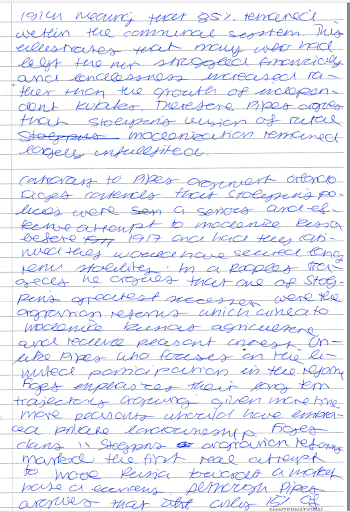 1914 meaning that 85% remained
within the communal system. This
illustrates that many who had
left the mir struggled financially
and landlessness increased ra-
ther than the growth of indepen-
dent kulaks. Therefore Pipes argues
that Stolypins vision of rural
modernisation remained
largely unfulfilled.
Contrary to Pipes argument Orlando
Figes contends that Stolypins po-
licies were a serious and ef-
fective attempt to modernise Russia
before 1917 and had they conti-
nued they would have secured long
term stability. In a Peoples Tra-
gedy he argues that one of Stoly-
pins greatest successes were the
agrarian reforms which aimed to
modernise Russias agriculture
and reduce peasant unrest. Un-
like Pipes who focuses on the li-
mited participation in the reforms
Figes emphasises their long term
trajectory arguing given more time
more peasants would have embra-
ced private landownership. Figes
claims " Stolypins agrarian reforms
marked the first real attempt
to move Russia towards a market
base economy. Although Pipes
argues that only 15% of